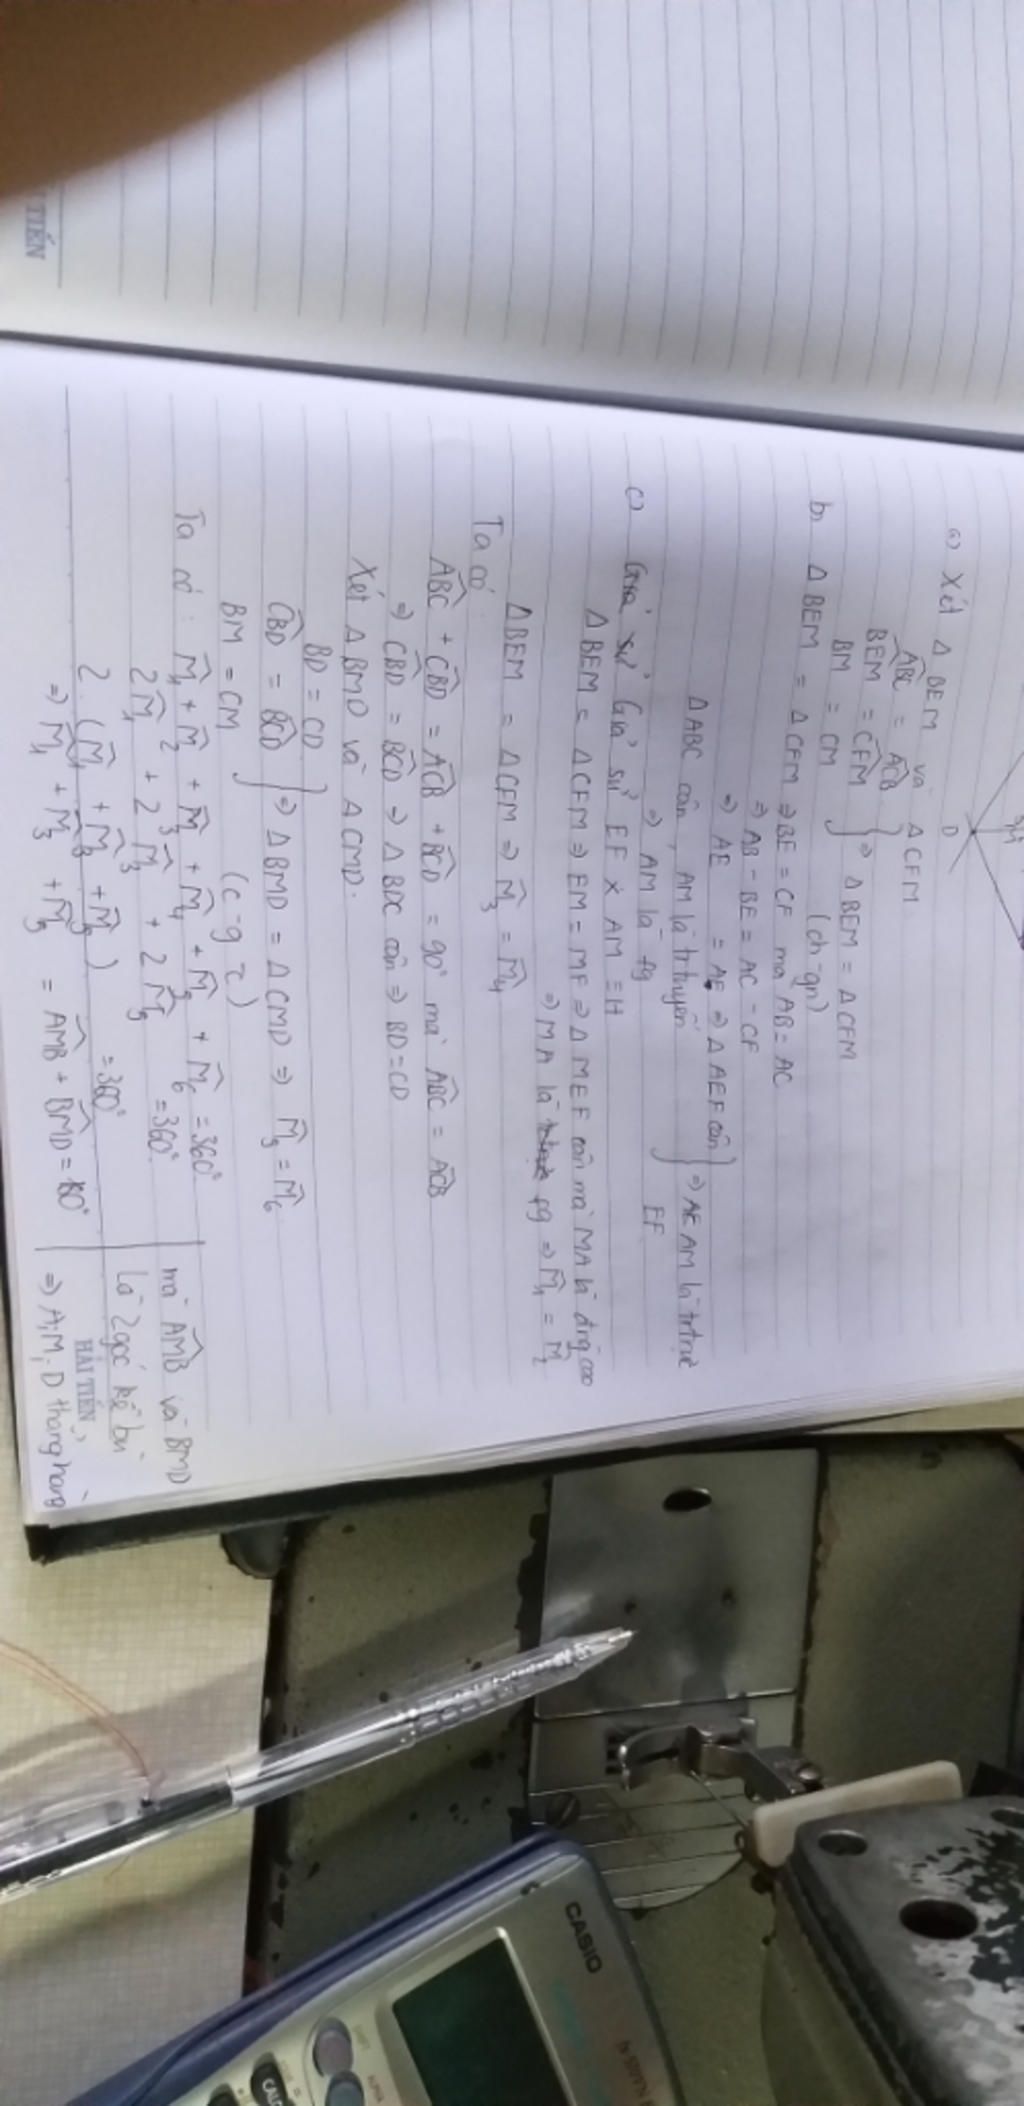 D
a) Xét Δ BEM và Δ CFM
ABC = ACB
BEM = CFM } ⇒ Δ BEM = Δ CFM
BM = CM (ch - gn)
b, Δ BEM = Δ CFM ⇒ BE = CF mà AB = AC
⇒ AB - BE = AC - CF
⇒ AE = AF ⇒ Δ AEF cân } ⇒ AM là tr trực
Δ ABC cân, AM là tr tuyến EF
⇒ AM là fg
c) Giả sử Giả sử EF x AM ≡ H
Δ BEM = Δ CFM ⇒ EM = MF ⇒ Δ MEF cân mà MA là đrg cao
⇒ MA là fg ⇒ M1 = M2
Δ BEM = Δ CFM ⇒ M3 = M4
Ta có:
ABC + CBD = ACB + BCD = 90° mà ABC = ACB
⇒ CBD = BCD ⇒ Δ BDC cân ⇒ BD = CD
Xét Δ BMD và Δ CMD.
BD = CD
CBD = BCD } ⇒ Δ BMD = Δ CMD ⇒ M5 = M6
BM = CM (c - g - c)
Ta có: M1 + M2 + M3 + M4 + M5 + M6 = 360°
2M1 + 2M3 + 2M5 = 360°
2 (M1 + M3 + M5) = 360°
⇒ M1 + M3 + M5 = AMB + BMD = 180°
mà AMB và BMD
là 2 góc kề bù
⇒ A, M, D thẳng hàng
HẢI TIẾN
TIẾN
CASIO
CALC